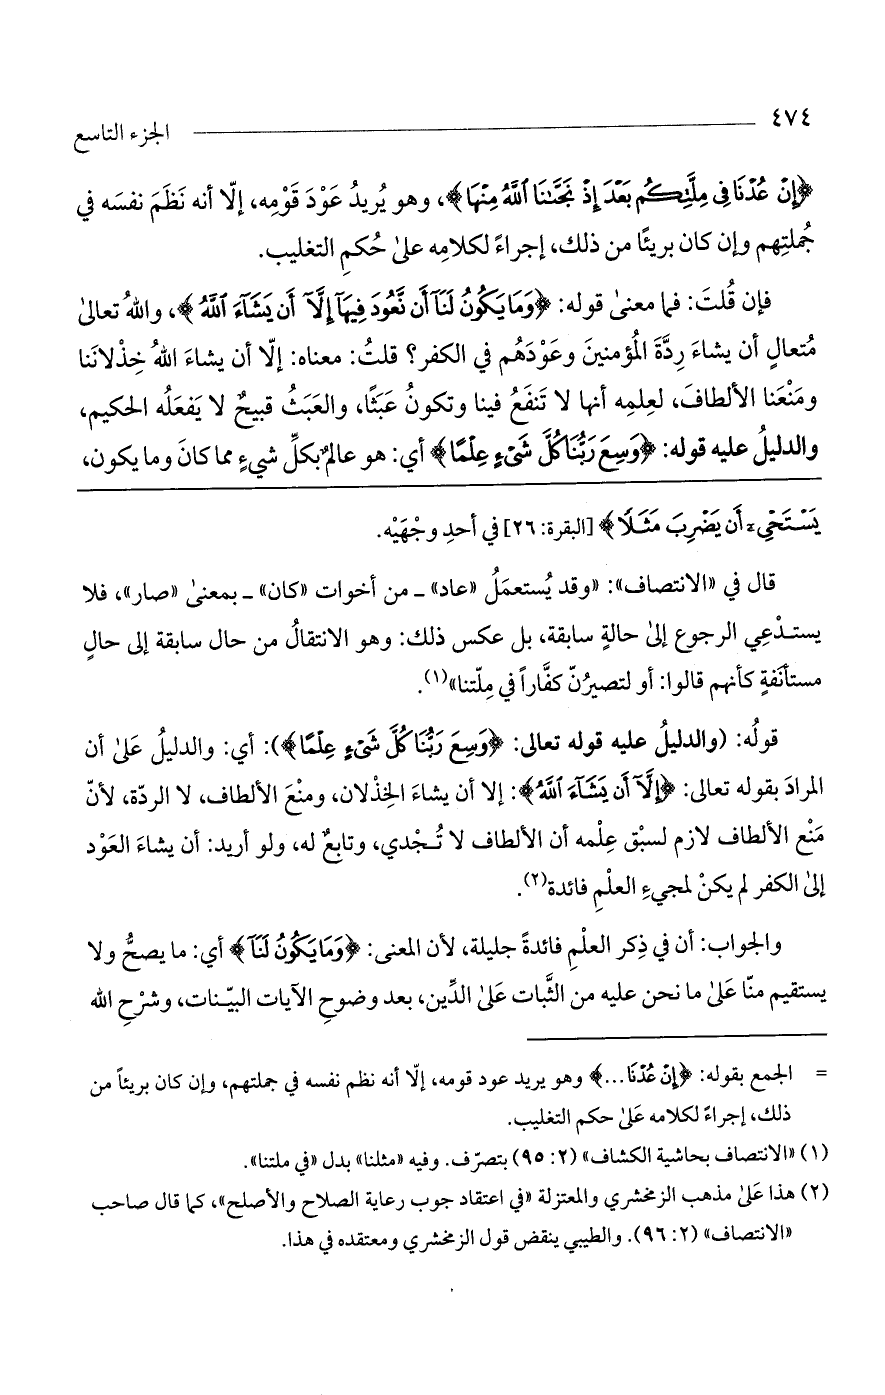 ٤٧٤ الجزء التاسع
﴿إِنْ عُدْنَا فِى مِلَّتِكُم بَعْدَ إِذْ نَجَّىٰنَا ٱللَّهُ مِنْهَا﴾، وهو يُريدُ عَوْدَ قَوْمِه، إلّا أنه نَظَمَ نفسَه في
جُملتِهم وإن كان بريئًا من ذلك، إجراءً لكلامِه علىٰ حُكمِ التغليب.
فإن قُلتَ: فما معنىٰ قوله: ﴿وَمَا يَكُونُ لَنَآ أَن نَّعُودَ فِيهَآ إِلَّآ أَن يَشَآءَ ٱللَّهُ﴾، واللهُ تعالىٰ
مُتعالٍ أن يشاءَ رِدَّةَ المُؤمنينَ وعَوْدَهُم في الكفر؟ قلتُ: معناه: إلّا أن يشاءَ اللهُ خِذْلانَنا
ومَنْعَنا الألطافَ، لعِلمِه أنها لا تَنفَعُ فينا وتكونُ عَبَثًا، والعَبَثُ قبيحٌ لا يَفعَلُه الحكيم،
والدليلُ عليه قوله: ﴿وَسِعَ رَبُّنَا كُلَّ شَىْءٍ عِلْمًا﴾ أي: هو عالمٌ بكلِّ شيءٍ مما كانَ وما يكون،
يَسْتَحْىِۦٓ أَن يَضْرِبَ مَثَلًا﴾ [البقرة: ٢٦] في أحدِ وجْهَيْه.
قال في «الانتصاف»: «وقد يُستعمَلُ «عاد» ـ من أخوات «كان» ـ بمعنىٰ «صار»، فلا
يستدْعِي الرجوع إلىٰ حالةٍ سابقة، بل عكس ذلك: وهو الانتقالُ من حال سابقة إلى حالٍ
مستأنَفةٍ كأنهم قالوا: أو لتصيرُنّ كفَّاراً في مِلّتنا»(١).
قولُه: (والدليلُ عليه قوله تعالى: ﴿وَسِعَ رَبُّنَا كُلَّ شَىْءٍ عِلْمًا﴾): أي: والدليلُ عَلىٰ أن
المرادَ بقوله تعالى: ﴿إِلَّآ أَن يَشَآءَ ٱللَّهُ﴾: إلا أن يشاءَ الخِذْلان، ومنْعَ الألطاف، لا الردّة، لأنّ
مَنْع الألطاف لازم لسبْق عِلْمه أن الألطاف لا تُجْدي، وتابعٌ له، ولو أريد: أن يشاءَ العَوْد
إلىٰ الكفر لم يكنْ لمجيءِ العلْمِ فائدة(٢).
والجواب: أن في ذِكر العلْمِ فائدةً جليلة، لأن المعنى: ﴿وَمَا يَكُونُ لَنَآ﴾ أي: ما يصحُّ ولا
يستقيم منّا عَلىٰ ما نحن عليه من الثَّبات عَلىٰ الدِّين، بعد وضوحِ الآيات البيّنات، وشرْحِ الله
= الجمع بقوله: ﴿إِنْ عُدْنَا...﴾ وهو يريد عود قومه، إلّا أنه نظم نفسه في جملتهم، وإن كان بريئاً من
ذلك، إجراءً لكلامه عَلىٰ حكم التغليب.
(١) «الانتصاف بحاشية الكشاف» (٢: ٩٥) بتصرّف. وفيه «مثلنا» بدل «في ملتنا».
(٢) هذا عَلىٰ مذهب الزمخشري والمعتزلة «في اعتقاد جوب رعاية الصلاح والأصلح»، كما قال صاحب
«الانتصاف» (٢: ٩٦). والطيبي ينقض قول الزمخشري ومعتقده في هذا.